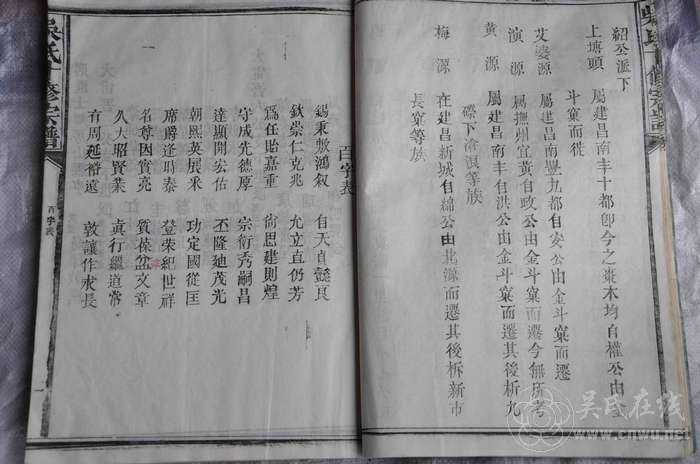 紹公派下
上塘頭 屬建昌南丰十都卽今之棗木均自權公由金
斗窠而徙
艾婆源 屬建昌南豐九都自安公由金斗窠而遷
演源 屬撫州宜黃自政公由金斗窠而遷今無所考
黃源 屬建昌南丰自洪公由金斗窠而遷其後析九
磜下滄浪等族
梅源 在建昌新城自綿公由北源而遷其後析新市
長窠等族
百字表
錫秉敷鴻叙 自天直懿良
欽崇仁克兆 允立直仍芳
爲任貽嘉重 尙思建則煌
守成先德厚 宗衍秀嗣昌
達顯開宏佑 丕隆廸茂光
朝熙英展釆 功定國從匡
席爵逢時泰 登荣紀世祥
名尊因實亮 質葆盆文章
久大昭賢業 真行繼道常
有周延禧遠 敦讓作求長
吳氏十修宗譜
百字表
一
吳氏在线
www.cnwu.net